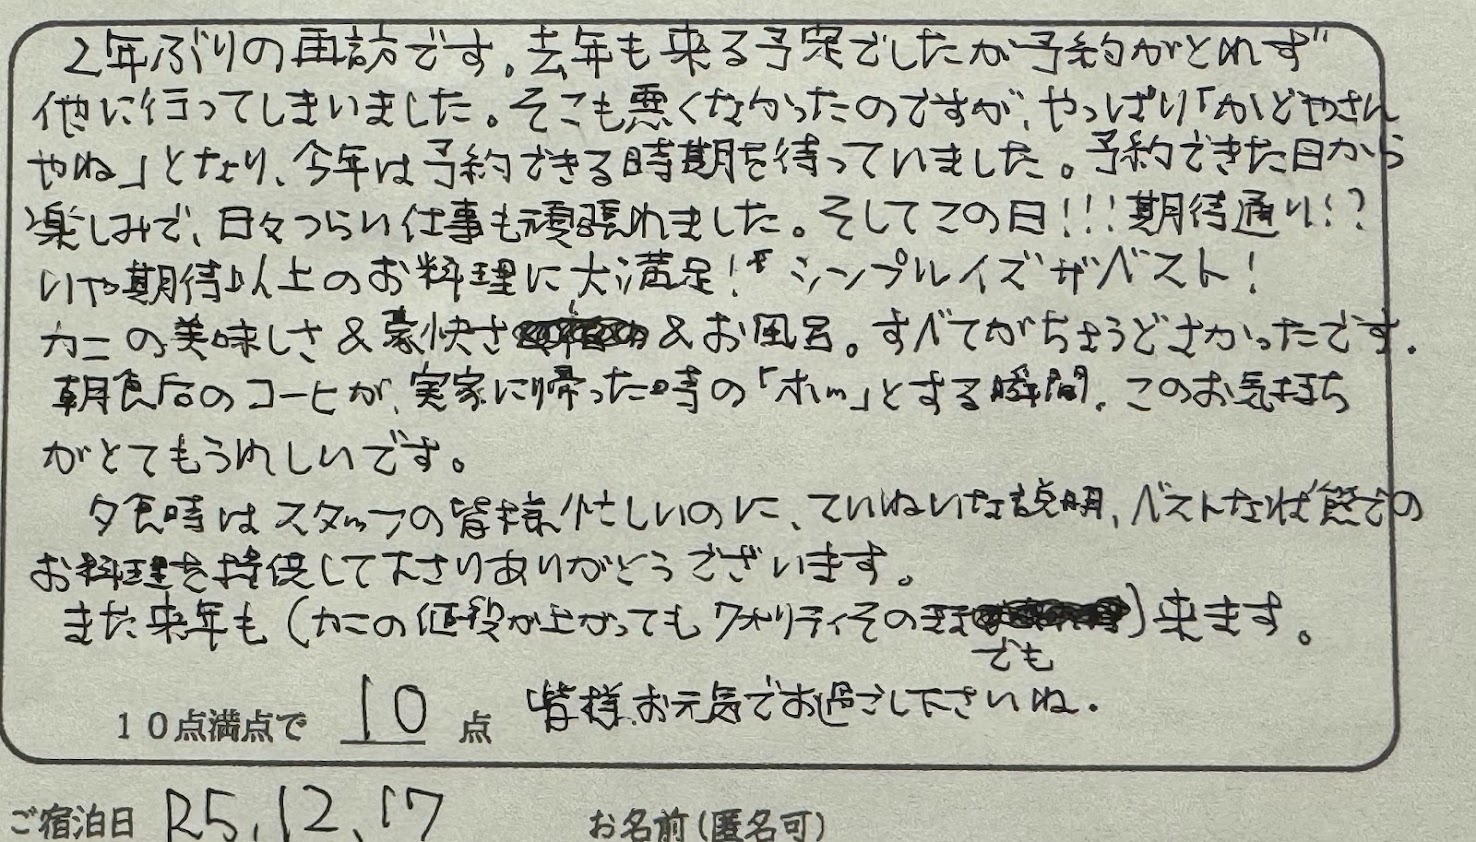 2年ぶりの再訪です。去年も来る予定でしたが予約がとれず
他に行ってしまいました。そこも悪くなかったのですが、やっぱり「かどやさん
やね」となり、今年は予約できる時期を待っていました。予約できた日から
楽しみで、日々つらい仕事も頑張れました。そしてこの日!!!期待通り!?
いや期待以上のお料理に大満足!! シンプルイズザベスト!
カニの美味しさ&豪快さ&お風呂。すべてがちょうどよかったです。
朝食后のコーヒが、実家に帰った時の「ホッ」とする瞬間、このお気持ち
がとてもうれしいです。
夕食時はスタッフの皆様忙しいのに、ていねいな説明、ベストな状態での
お料理を提供して下さりありがとうございます。
また来年も(カニの値段が上がってもクオリティそのままでも)来ます。
10点満点で 10 点 皆様、お元気でお過ごし下さいね。
ご宿泊日 R5.12.17 お名前(匿名可)